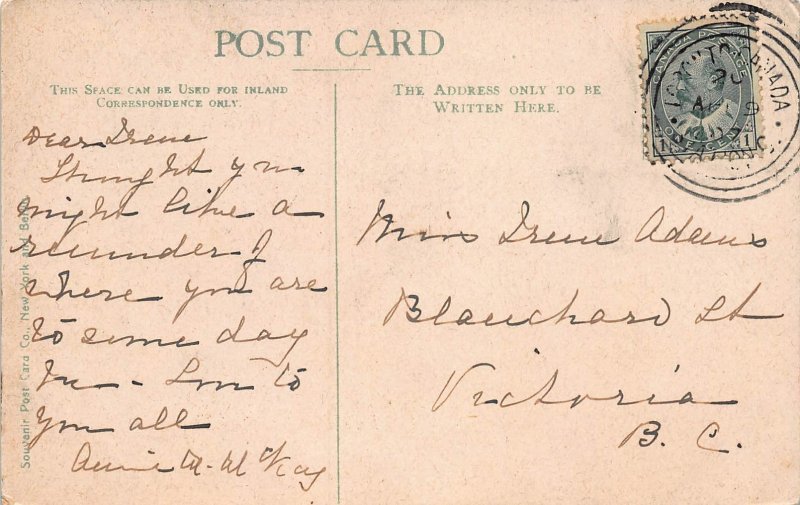 POST CARD
THIS SPACE CAN BE USED FOR INLAND
CORRESPONDENCE ONLY.
THE ADDRESS ONLY TO BE
WRITTEN HERE.
CANADA POSTAGE
1 ONE CENT 1
TORONTO CANADA
Dear Irene
I thought you
might like a
reminder of
where you are
to some day
to
you all
Annie M. McKay
Miss Irene Adams
Blanchard St
Victoria
B. C.
Souvenir Post Card Co., New York and Berlin